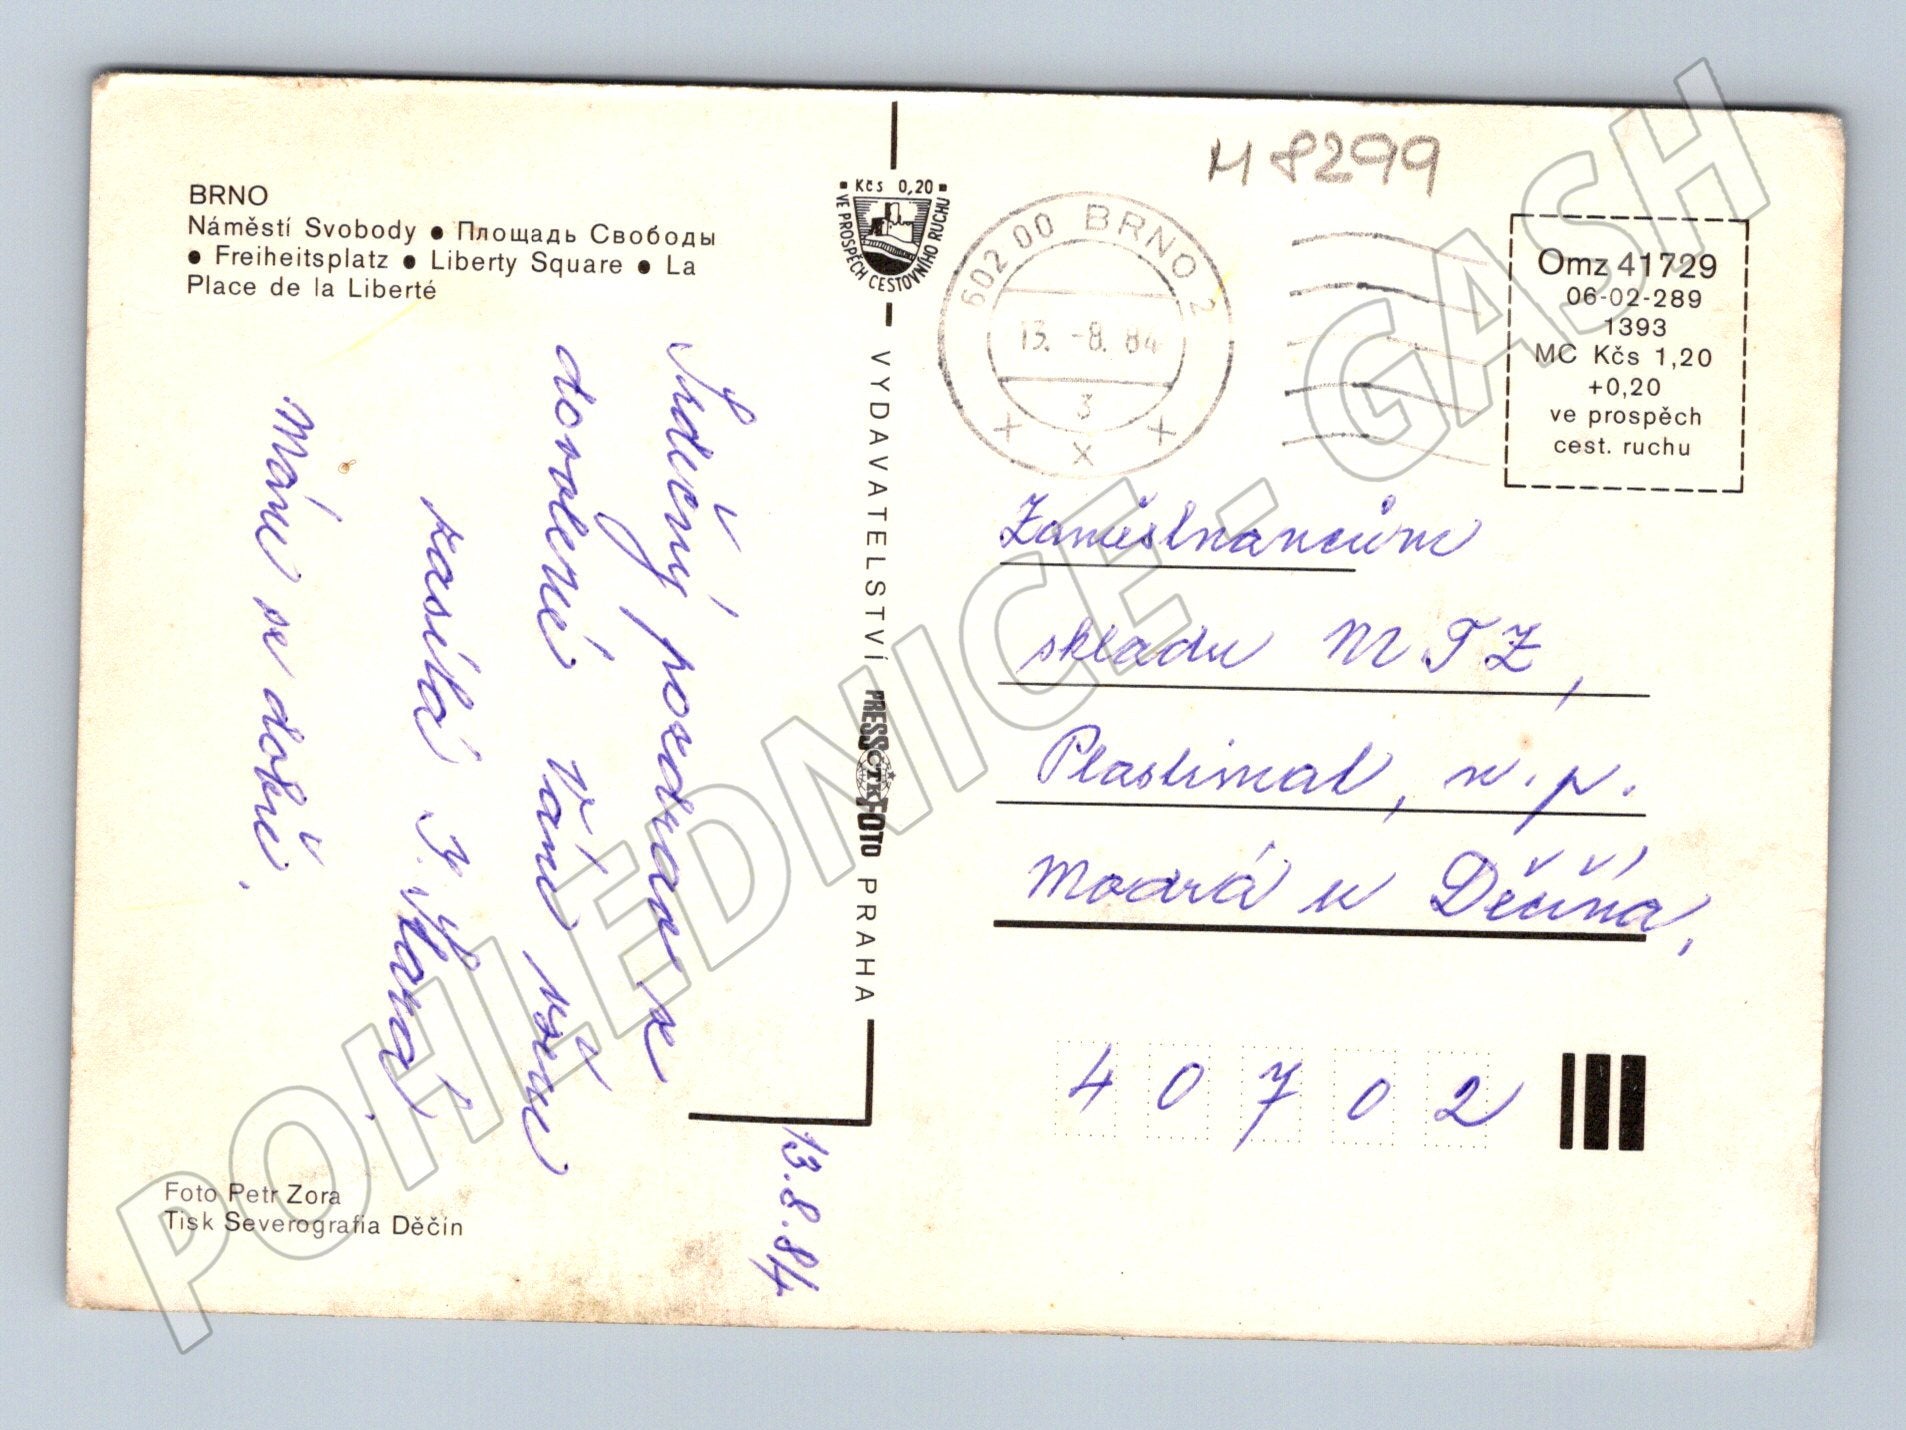 BRNO
Náměstí Svobody ● Площадь Свободы
● Freiheitsplatz ● Liberty Square ● La
Place de la Liberté
Srdečný pozdrav z
dovolené Vám všem
zasílá J.
Mám se dobře.
13.8.84
Foto Petr Zora
Tisk Severografia Děčín
Kčs 0,20
VE PROSPĚCH CESTOVNÍHO RUCHU
VYDAVATELSTVÍ PRESSFOTO PRAHA
ČTK
M 8299
602 00 BRNO 2
13. -8. 84
3
Omz 41729
06-02-289
1393
MC Kčs 1,20
+0,20
ve prospěch
cest. ruchu
Zaměstnancům
skladu MTZ,
Plastimat, n.p.
Modrá u Děčína,
40702
POHLEDNICE - GASH